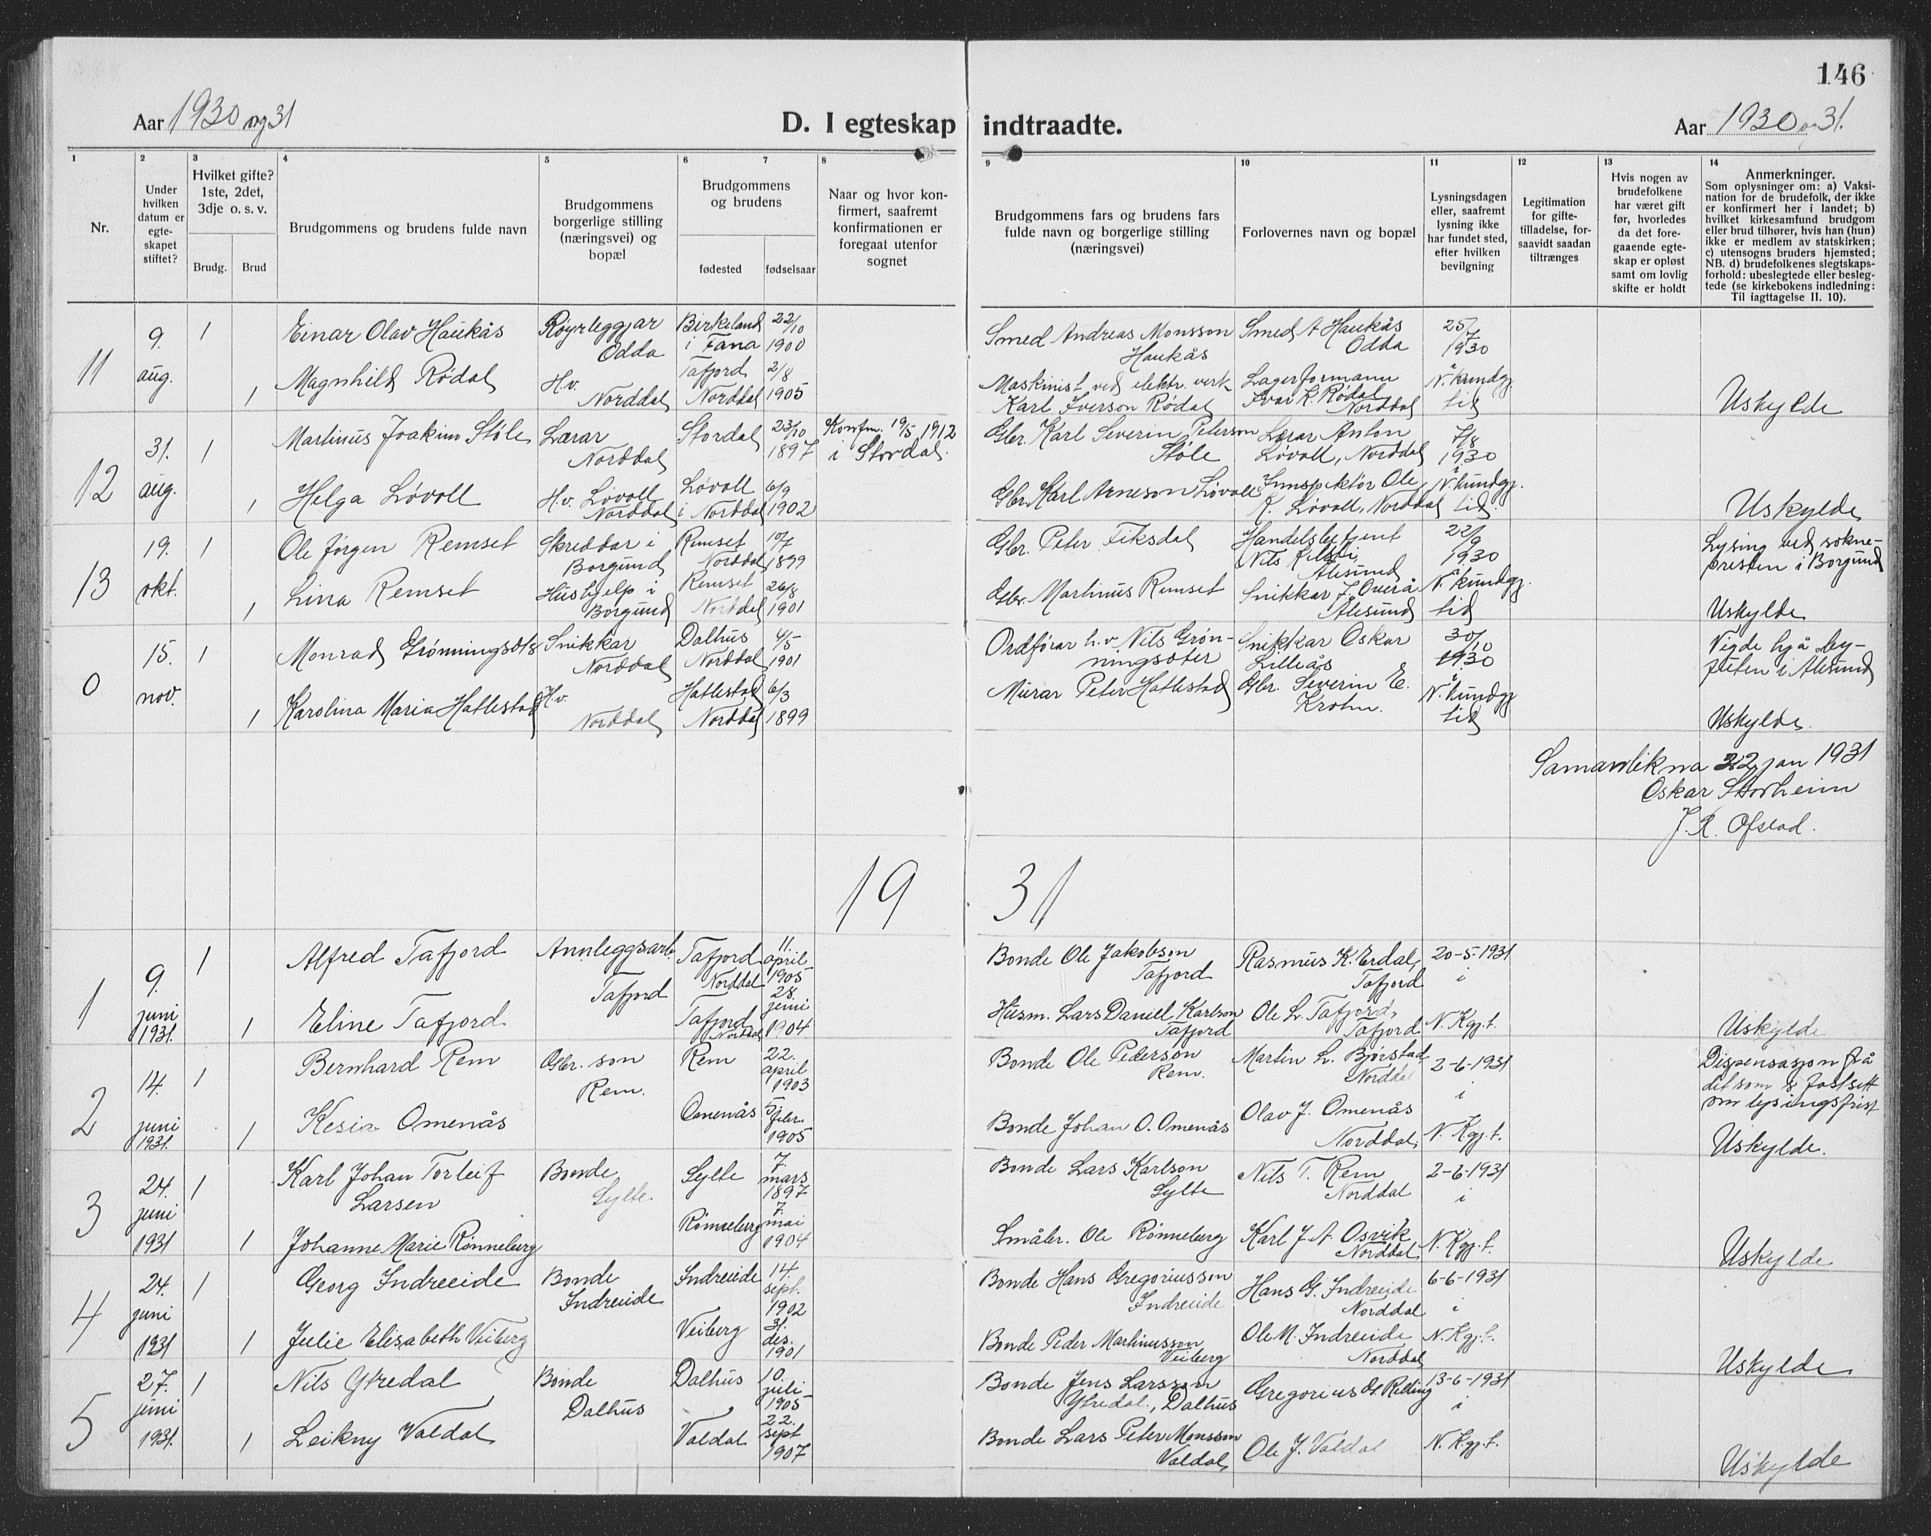 146
Aar 1930 og 31
D. I egteskap indtraadte.
Aar 1930 og 31.
1
2
3
4
5
6
7
8
9
10
11
12
13
14
Nr.
Under
hvilken
datum er
egte-
skapet
stiftet?
Hvilket gifte?
1ste, 2det,
3dje o. s. v.
Brudg.
Brud
Brudgommens og brudens fulde navn
Brudgommens
borgerlige stilling
(næringsvei) og
bopæl
Brudgommens
og brudens
fødested
fødselsaar
Naar og hvor kon-
firmert, saafremt
konfirmationen er
foregaat utenfor
sognet
Brudgommens fars og brudens fars
fulde navn og borgerlige stilling
(næringsvei)
Forlovernes navn og bopæl
Lysningsdagen
eller, saafremt
lysning ikke
har fundet sted,
efter hvilken
bevilgning
Legitimation
for gifte-
tilladelse, for-
saavidt saadan
tiltrænges
Hvis nogen av
brudefolkene
har været gift
før, hvorledes
da det fore-
gaaende egte-
skap er opløst
samt om lovlig
skifte er holdt
Anmerkninger.
Som oplysninger om: a) Vaksi-
nation for de brudefolk, der ikke
er konfirmert her i landet; b)
hvilket kirkesamfund brudgom
eller brud tilhører, hvis han (hun)
ikke er medlem av statskirken;
c) utensogns bruders hjemsted;
NB. d) brudefolkenes slegtskaps-
forhold: ubeslegtede eller besleg-
tede (se kirkebokens indledning:
Til iagttagelse II. 10).
11
9.
aug.
1
Einar Olav Haukås
Røyrleggjar
Odda
Birkeland
i Fana
22/10
1900
Smed Andreas Monsson
Haukås
Smed A Haukås
Odda
25/7
1930
1
Magnhild Rødal
H.v.
Norddal
Tafjord
Norddal
2/8
1905
Maskinist ved elektr. verk
Karl Iverson Rødal
Lagerformann
Ivar K. Rødal
Norddal
N. kundgj.
tid
Uskylde
12
31.
aug.
1
Martinus Joakim Støle
Lærar
Norddal
Stordal
23/10
1897
Konfm. 19/5 1912
i Stordal.
Gbr. Karl Severin Peterson
Støle
Lærar Anton
Løvoll, Norddal
7/8
1930
1
Helga Løvoll
H.v. Løvoll
Norddal
Løvoll
i Norddal
6/9
1902
Gbr. Karl Arneson Løvoll
Innspektør Ole
K. Løvoll, Norddal
N. kundgj.
tid
Uskylde
13
19.
okt.
1
Ole Jørgen Remset
Skreddar i
Borgund
Remset
Norddal
10/7
1899
Gbr. Peter Fiksdal
Handelsbetjent
Nils
Ålesund
22/9
1930
Lysing ved sokne-
presten i Borgund
1
Lina Remset
Hushjelp i
Borgund
Remset
Norddal
26/8
1901
Gbr. Martinus Remset
Snikkar J. Overå
Ålesund
N. kundgj.
tid
Uskylde
0
15.
nov.
1
Monrad Grønningsæter
Snikkar
Norddal
Dalhus
Norddal
4/5
1901
Ordførar h.v. Nils Grøn-
ningsæter
Snikkar Oskar
Lilleås
30/10
1930
Vigde hjå by-
presten i Ålesund
1
Karolina Maria Hatlestad
H.v.
Norddal
Hatlestad
Norddal
6/3
1899
Murar Peter Hatlestad
Gbr. Severin E.
Krohn.
N. kundgj.
tid
Uskylde.
Samanlikna 22 jan 1931
Oskar Storheim
J. R. Ofstad.
19 31
1
9.
juni
1931.
1
Alfred Tafjord
Annleggsarb.
Tafjord
Tafjord
Norddal
11.
april
1905
Bonde Ole Jakobson
Tafjord
Rasmus K. Erdal,
Tafjord
20-5-1931
i
1
Eline Tafjord
Tafjord
Norddal
28.
juni
1904
Husm. Lars Daniel Karlson
Tafjord
Ole L. Tafjord,
Tafjord
N. Kgj.t.
Uskylde
2
14.
juni
1931.
1
Bernhard Rem
Gbr. son
Rem.
Rem
22.
april
1903
Bonde Ole Pederson
Rem.
Martin L. Bjørstad
Norddal
2-6-1931
i
Dispensasjon frå
det som er fastsett
om lysingsfrist
1
Kesia Omenås
Omenås
5.
febr.
1905
Bonde Johan O. Omenås
Olav J. Omenås
Norddal
N. Kgj.t.
Uskylde.
3
24.
juni
1931
1
Karl Johan Torleif
Larsen
Bonde
Sylte.
Sylte
7.
mars
1897
Bonde Lars Karlson
Sylte
Nils T. Rem
Norddal
2-6-1931
i
1
Johanne Marie Rønneberg
Rønneberg
7.
mai
1904
Småbr. Ole Rønneberg
Karl J. A. Osvik
Norddal
N. Kgj.t.
Uskylde
4
24.
juni
1931
1
Georg Indreeide
Bonde
Indreeide
Indreeide
14.
sept.
1902
Bonde Hans Gregoriusson
Indreeide
Hans G. Indreeide
Norddal
6-6-1931
i
1
Julie Elisabeth Veiberg
Veiberg
31.
des.
1901
Bonde Peder Martinusson
Veiberg
Ole N. Indreeide
Norddal
N. Kgj.t.
Uskylde
5
27.
juni
1931.
1
Nils Ytredal
Bonde
Dalhus
Dalhus
10.
juli
1905
Bonde Jens Larsson
Ytredal, Dalhus
Gregorius O. Relling
13-6-1931
i
1
Leikny Valdal
Valdal
22.
sept
1907
Bonde Lars Peter Monsson
Valdal
Ole J. Valdal
N. Kgj.t.
Uskylde